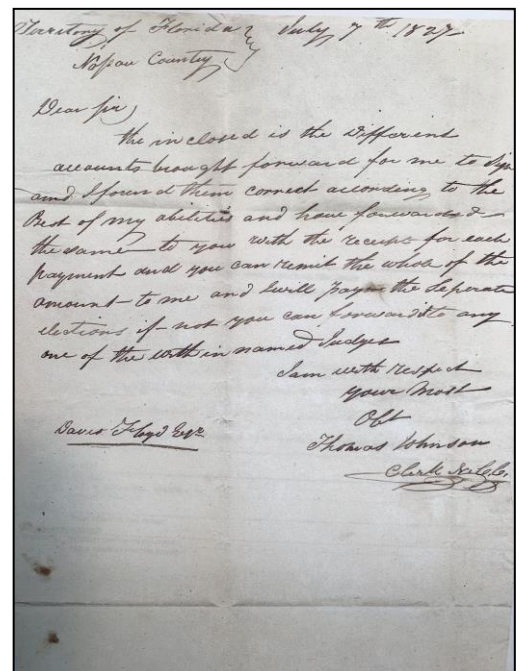 Territory of Florida } July 7th 1827
Nassau County
Dear Sir
the inclosed is the different
accounts brought forward for me to Sign
and I found them correct according to the
Best of my abilities and have forwarded
the same to you with the receipts for each
payment and you can remit the whole of the
amount to me and I will pay the seperate
elections if not you can forward it to any
one of the with in named Judges
I am with respect
your most
Obt
Thomas Johnson
Clerk
Davis Floyd Esqr